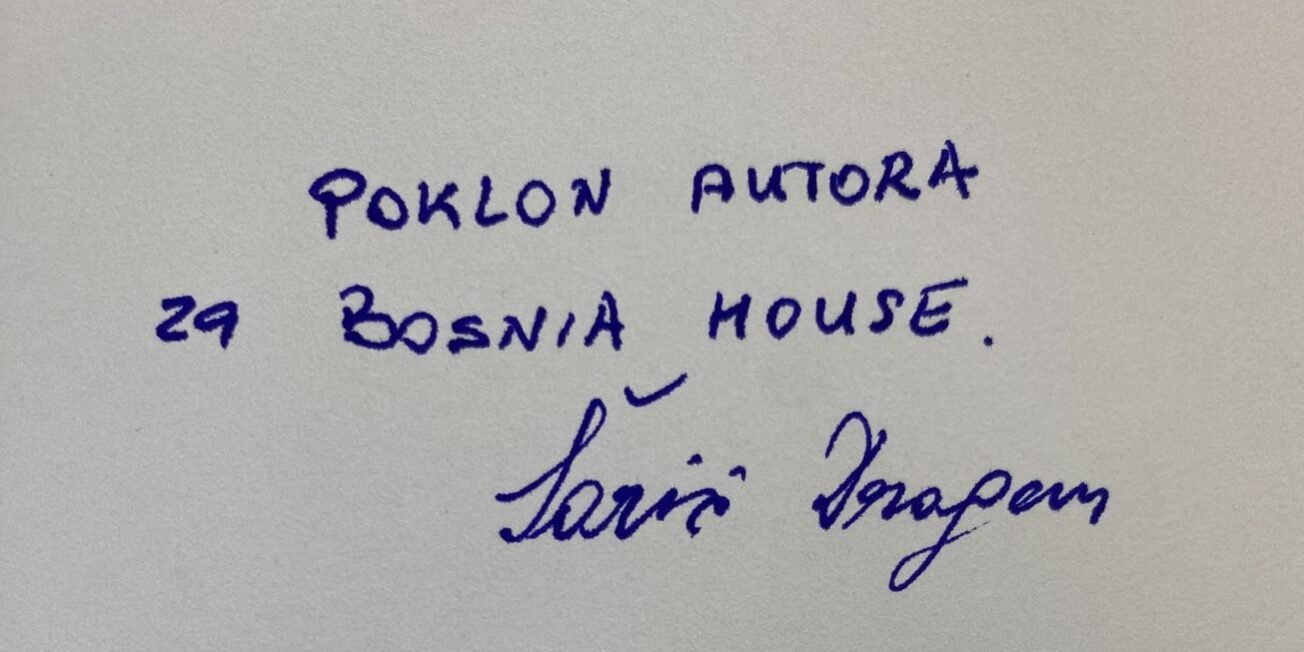 POKLON AUTORA
ZA BOSNIA HOUSE.
Šarić Dragan